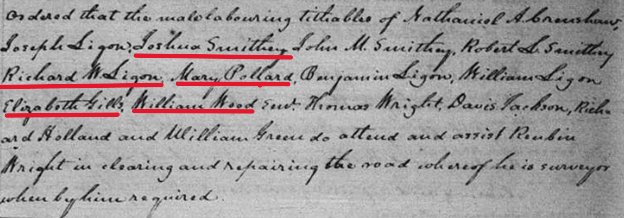 Ordered that the male labouring tithables of Nathaniel A Crenshaw,
Joseph Ligon, Joshua Smithey John M. Smithey, Robert L. Smithey
Richard W. Ligon, Mary Pollard, Benjamin Ligon, William Ligon
Elizabeth Gills, William Wood Senr. Thomas Wright, Davis Jackson, Rich-
ard Holland and William Green do attend and assist Reubin
Wright in clearing and repairing the road whereof he is surveyor
when by him required.